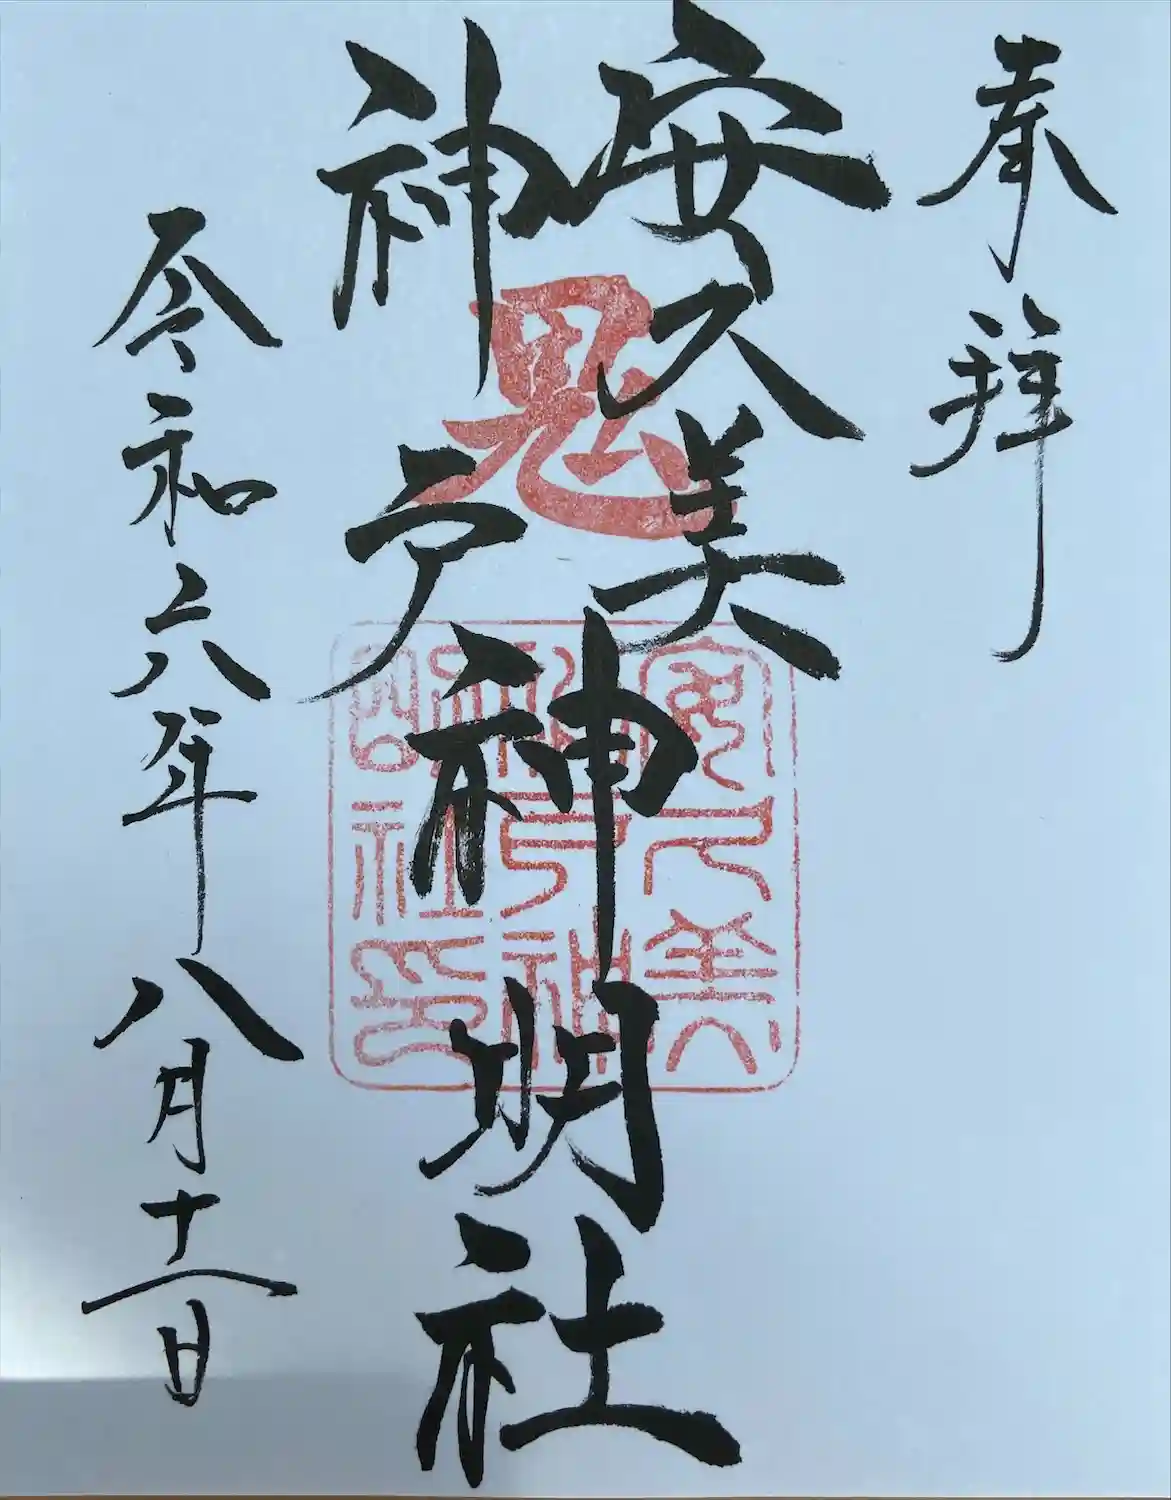 奉拝
安久美
神戸
神明社
鬼
安久美
神戸神
明社印
令和六年八月十一日